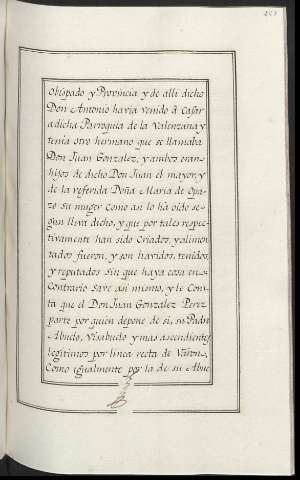 Obispado y Provincia y de alli dicho
Don Antonio havia venido á Casar
a dicha Parroquia de la Valenzana y
tenia otro hermano que se llamaba
Don Juan Gonzalez, y ambos eran
hijos de dicho Don Juan el mayor, y
de la referida Doña Maria de Opa-
zo su muger como an lo há oido se-
gun lleva dicho, y que por tales respec-
tivamente han sido Criados, y alimen-
tados fueron, y son havidos, tenidos,
y reputados sin que haya cosa en-
Contrario save asi mismo, y le Cons-
ta que el Don Juan Gonzalez Perez
parte por quién depone de si, su Padre
Abuelo, Visabuelo y mas ascendientes
legitimos por linea recta de Varon,
Como igualmente por la de su Abue